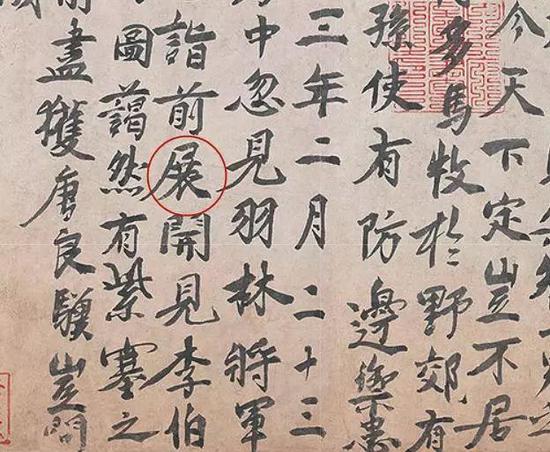 今天下定豈不居
多馬牧於野郊有
孫使有防邊禦患
三年二月二十三
中忽見羽林將軍
詣前展開見李伯
圖藹然有紫塞之
前盡獲唐良驥豈問